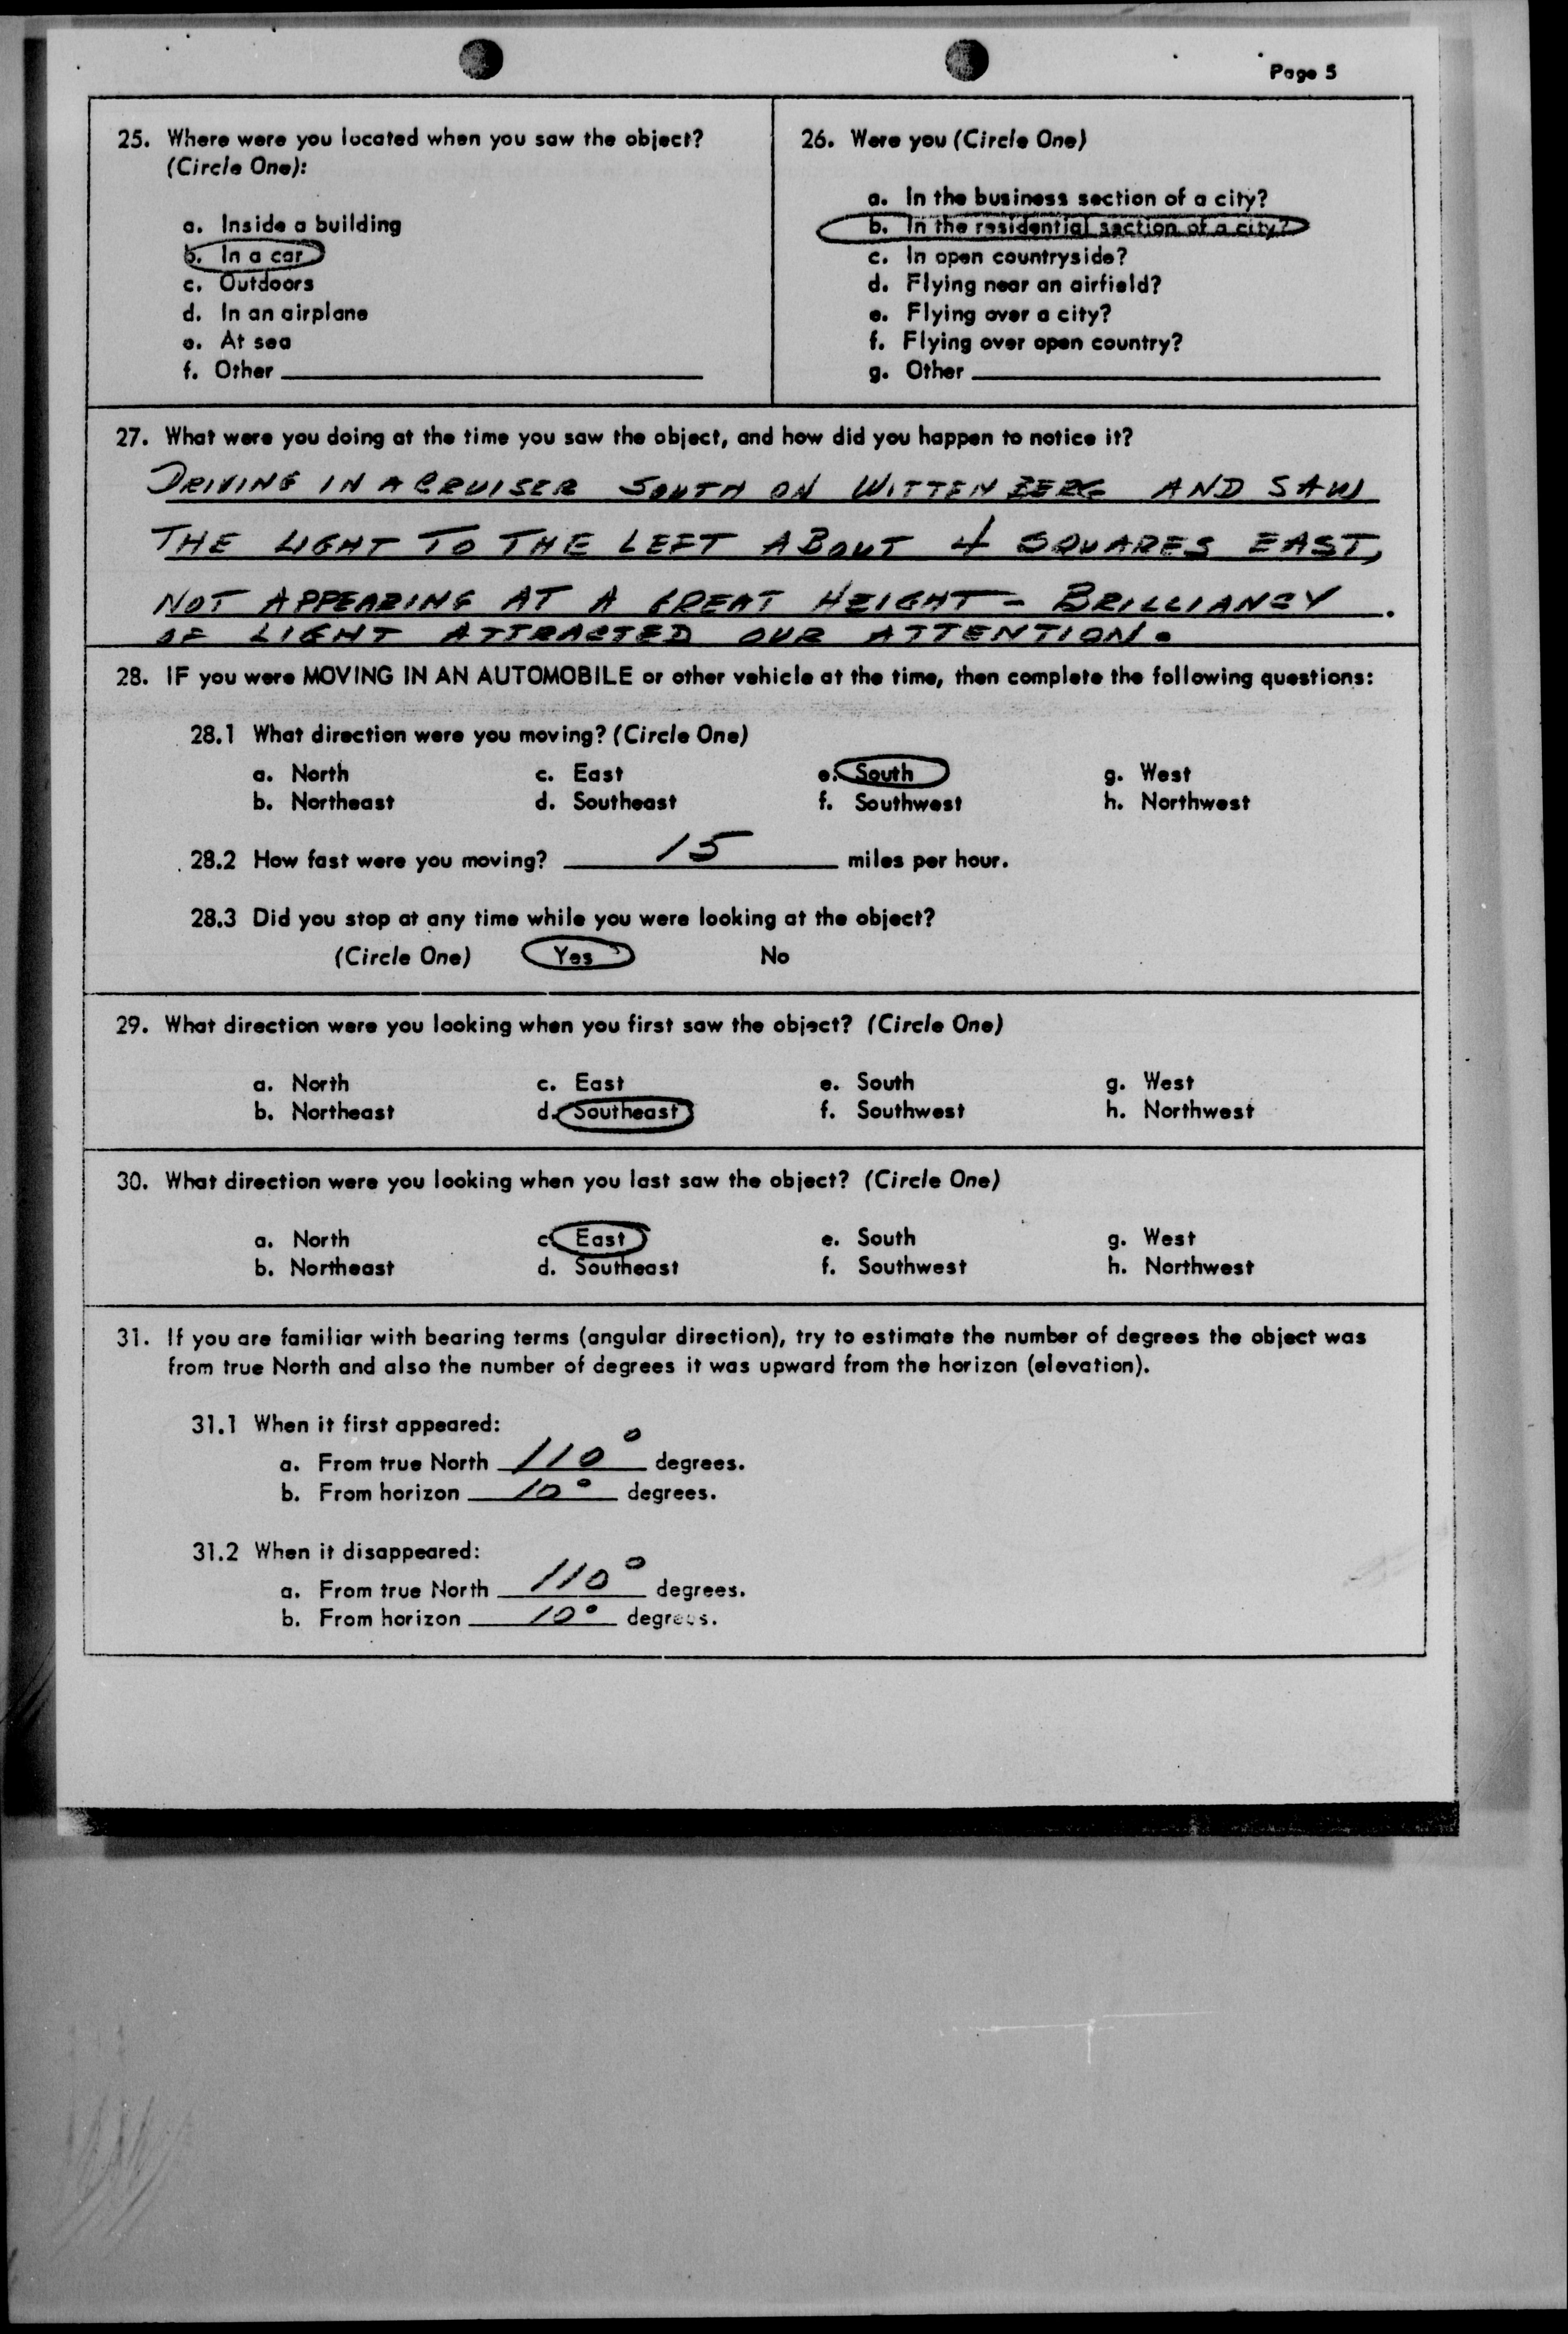 Page 5
25. Where were you located when you saw the object?
(Circle One):
a. Inside a building
b. In a car
c. Outdoors
d. In an airplane
e. At sea
f. Other
26. Were you (Circle One)
a. In the business section of a city?
b. In the residential section of a city?
c. In open countryside?
d. Flying near an airfield?
e. Flying over a city?
f. Flying over open country?
g. Other
27. What were you doing at the time you saw the object, and how did you happen to notice it?
DRIVING IN A CRUISER SOUTH ON WITTENBERG AND SAW
THE LIGHT TO THE LEFT ABOUT 4 SQUARES EAST,
NOT APPEARING AT A GREAT HEIGHT - BRILLIANCY
OF LIGHT ATTRACTED OUR ATTENTION.
28. IF you were MOVING IN AN AUTOMOBILE or other vehicle at the time, then complete the following questions:
28.1 What direction were you moving? (Circle One)
a. North c. East e. South g. West
b. Northeast d. Southeast f. Southwest h. Northwest
28.2 How fast were you moving? 15 miles per hour.
28.3 Did you stop at any time while you were looking at the object?
(Circle One) Yes No
29. What direction were you looking when you first saw the object? (Circle One)
a. North c. East e. South g. West
b. Northeast d. Southeast f. Southwest h. Northwest
30. What direction were you looking when you last saw the object? (Circle One)
a. North c. East e. South g. West
b. Northeast d. Southeast f. Southwest h. Northwest
31. If you are familiar with bearing terms (angular direction), try to estimate the number of degrees the object was
from true North and also the number of degrees it was upward from the horizon (elevation).
31.1 When it first appeared:
a. From true North 110° degrees.
b. From horizon 10° degrees.
31.2 When it disappeared:
a. From true North 110° degrees.
b. From horizon 10° degrees.